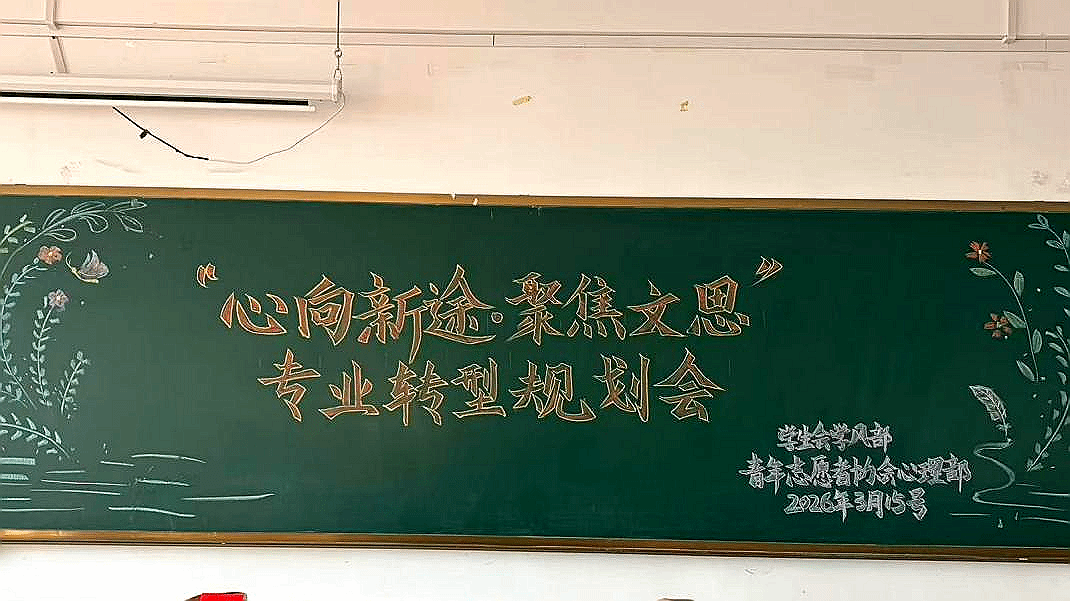 “心向新途·聚焦文思”
专业转型规划会
学生会学风部
青年志愿者协会心理部
2026年3月15号